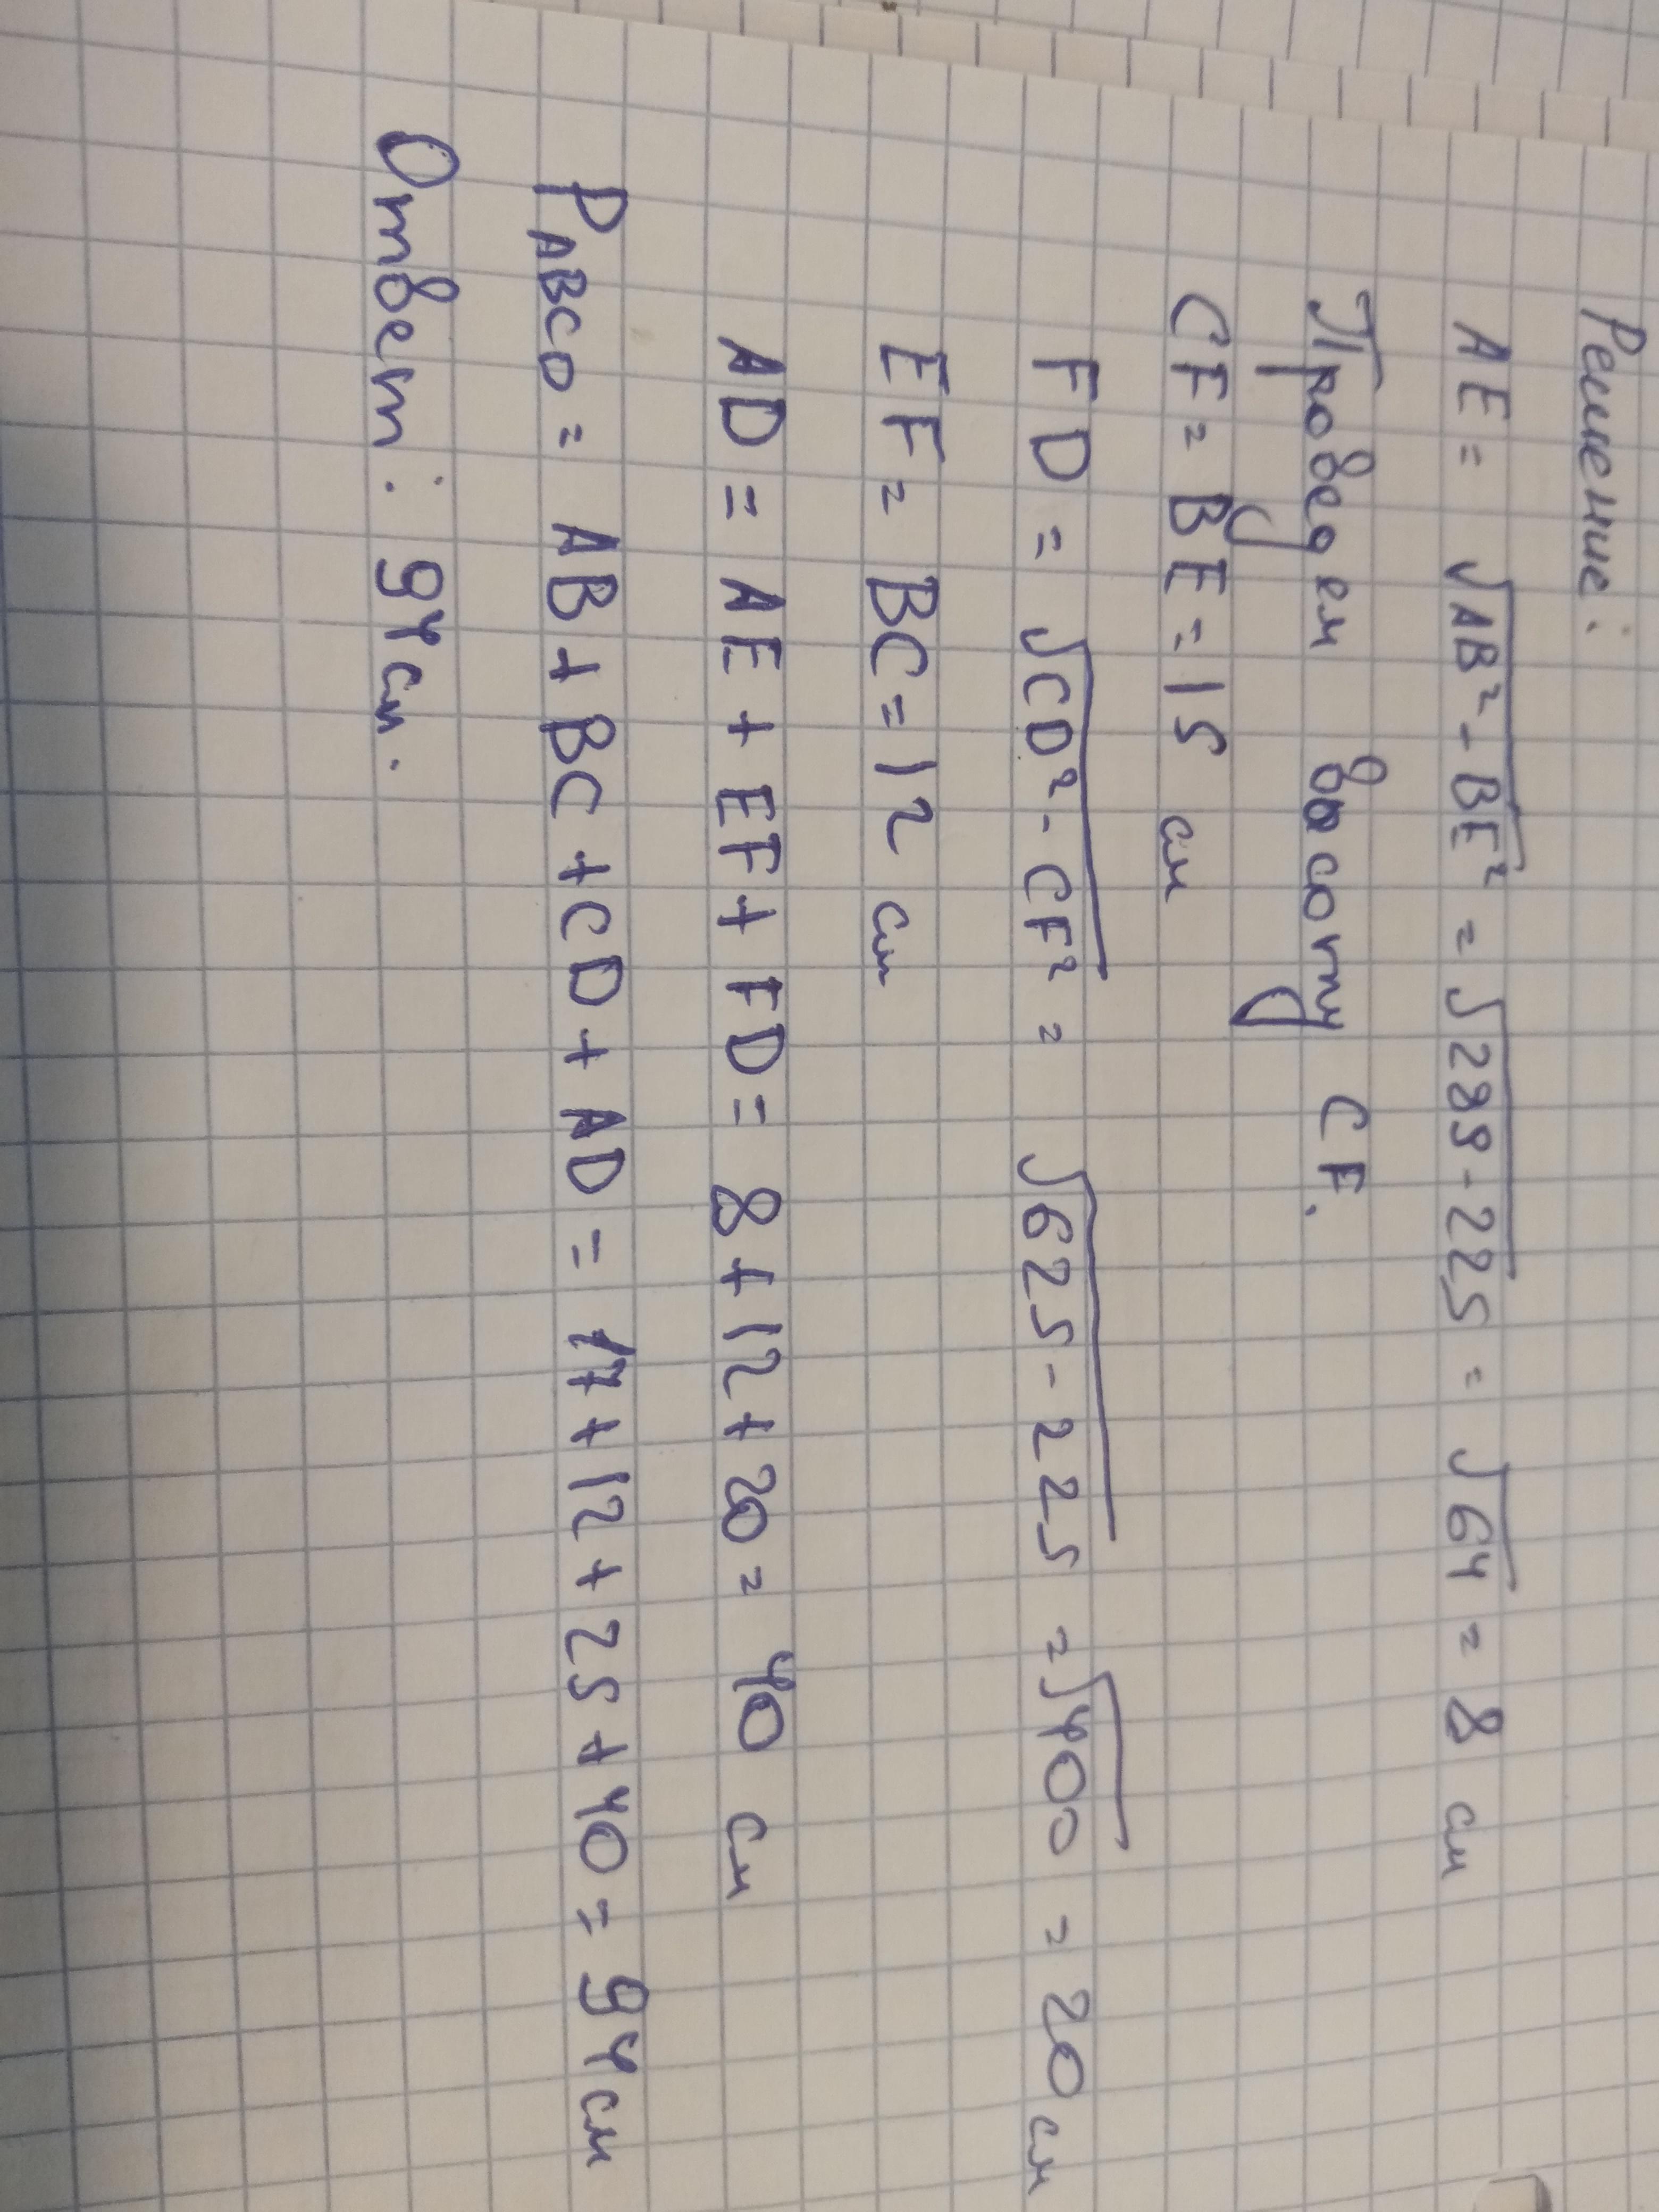 Решение:
AE = √AB² - BE² = √289 - 225 = √64 = 8 см
Проведем высоту CF.
CF = BE = 15 см
FD = √CD² - CF² = √625 - 225 = √400 = 20 см
EF = BC = 12 см
AD = AE + EF + FD = 8 + 12 + 20 = 40 см
PABCD = AB + BC + CD + AD = 17 + 12 + 25 + 40 = 94 см
Ответ: 94 см.